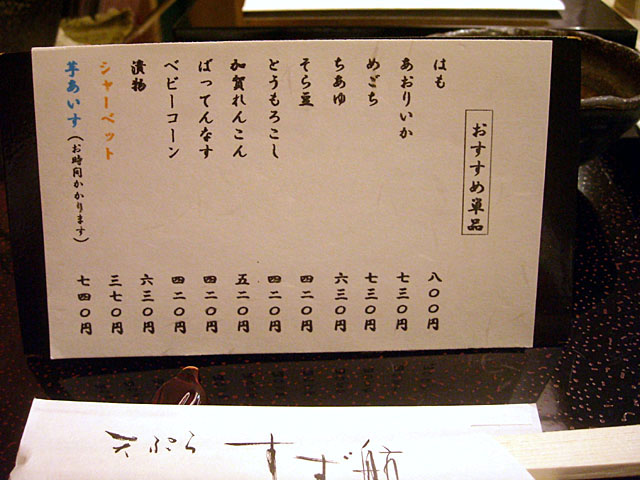 おすすめ単品
はも 八〇〇円
あおりいか 七三〇円
めごち 七三〇円
ちあゆ 六三〇円
そら豆 四二〇円
とうもろこし 四二〇円
加賀れんこん 五二〇円
ばってんなす 四二〇円
ベビーコーン 四二〇円
漬物 六三〇円
シャーベット 三七〇円
芋あいす(お時間かかります) 七四〇円
天ぷら すず航